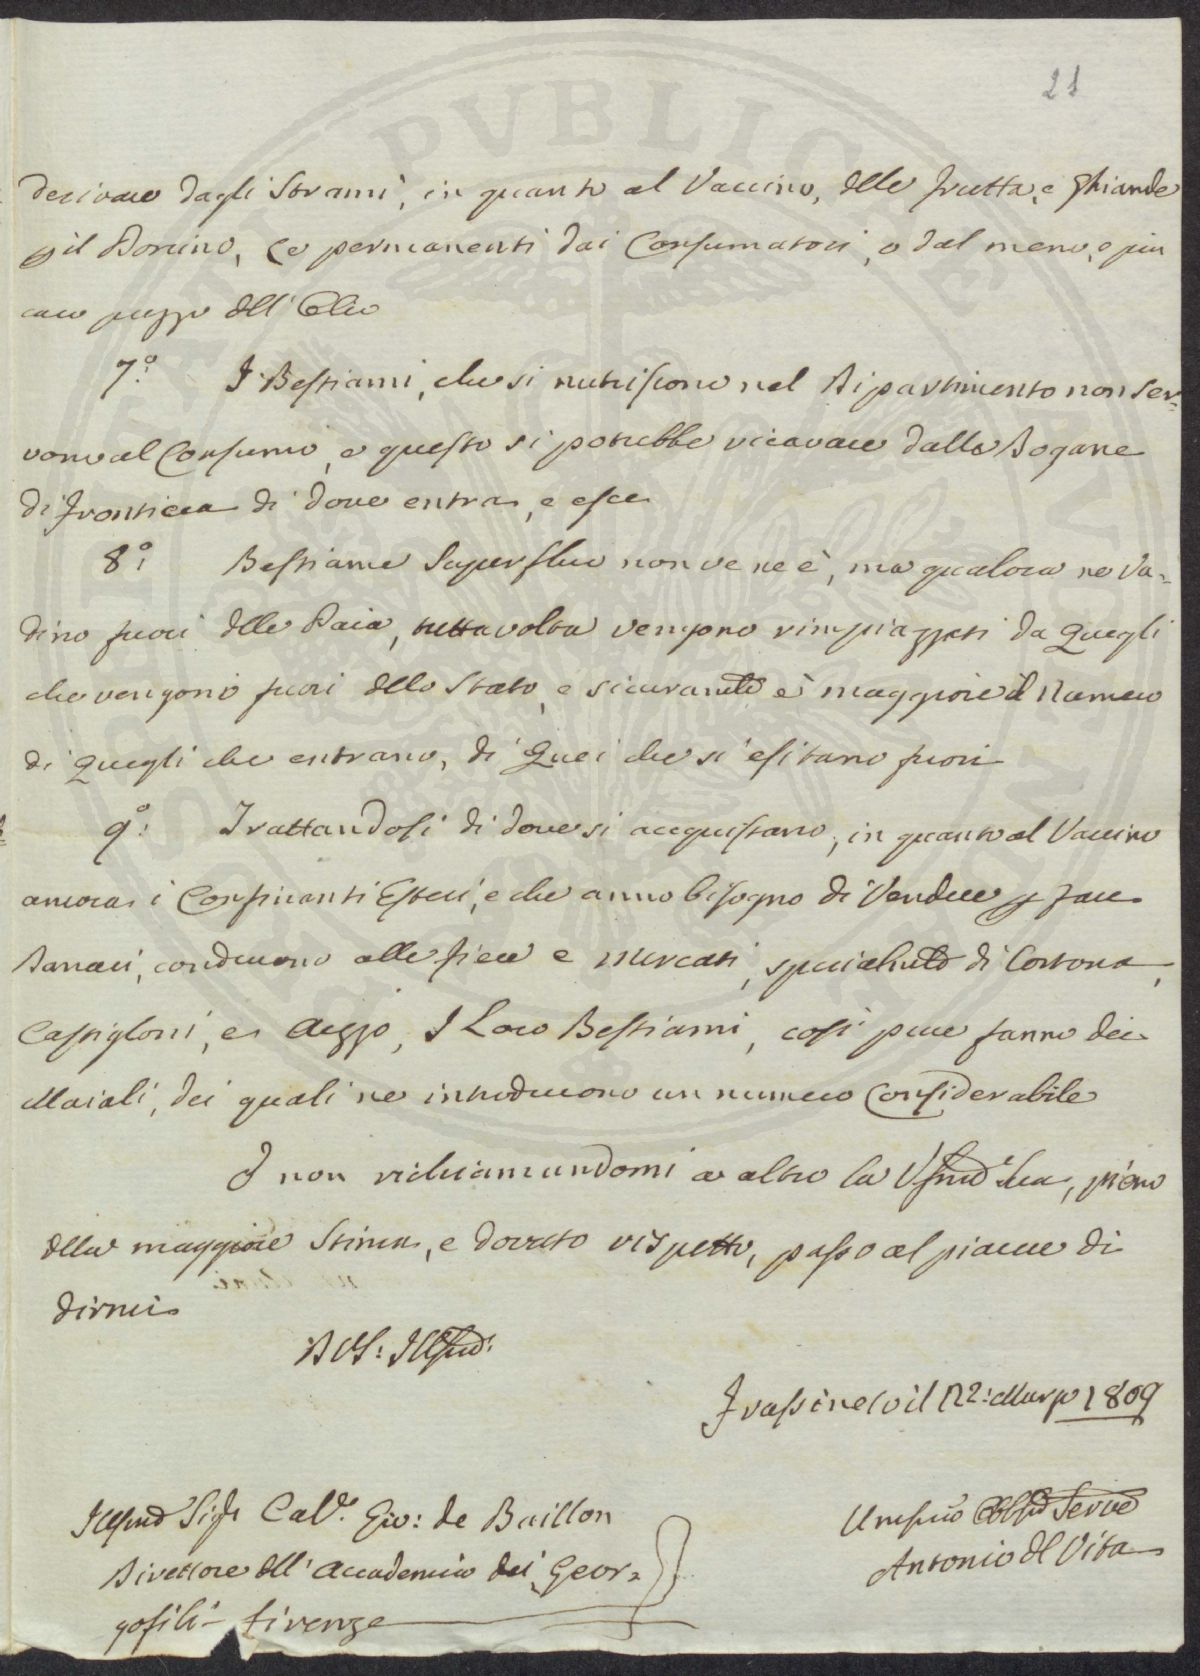 21
derivare dagli Strami, in quanto al Vaccino, delle frutta, e Ghiande
p il Porcino, Le permanenti dai Consumatori, o dal meno, o piu
caro prezzo dell' Olio
7.° I Bestiami, che si nutriscono nel Dipartimento non ser=
vono al Consumo, e questo si potrebbe ricavare dalle Dogane
di Frontiera di dove entra, e esce
8.° Bestiame Superfluo non ve ne è, ma qualora ne va=
dino fuori delle Paia, tutta volta vengono rimpiazzati da Quegli
che vengono fuori dello Stato, e sicuram.te è maggiore il Numero
di Quegli che entrano, di Quei che si esitano fuori
9.° Trattandosi di dove si acquistano, in quanto al Vaccino
ancora i Confinanti Esteri, e che anno bisogno di Vendere p fare
Danari, conducono alle fiere e mercati, specialm.te di Cortona,
Castigloni, e Arezzo, I Loro Bestiami, così pure fanno dei
Maiali, dei quali ne introducono un numero Considerabile
E non richiamandomi a altro la Sua, pieno
della maggiore Stima, e dovuto rispetto, passo al piacere di
dirmi
D VS: Illma
Frassineto il 22: Marzo 1809
Illmo Sig.r Cav.e Gio: de Baillon
Direttore dell' Accademia dei Geor=
gofili Firenze
Umilmo Obblmo Serve
Antonio del Vita